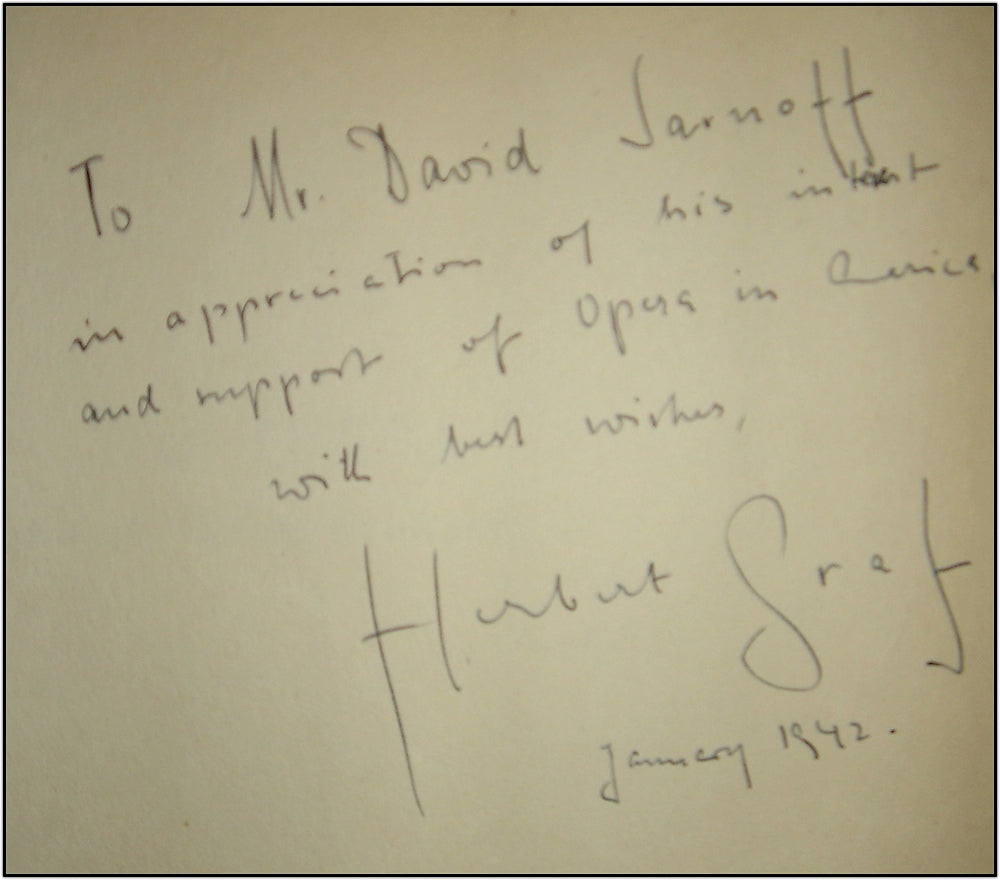 To Mr. David Sarnoff
in appreciation of his interest
and support of Opera in America,
with best wishes,
Herbert Graf
January 1942.